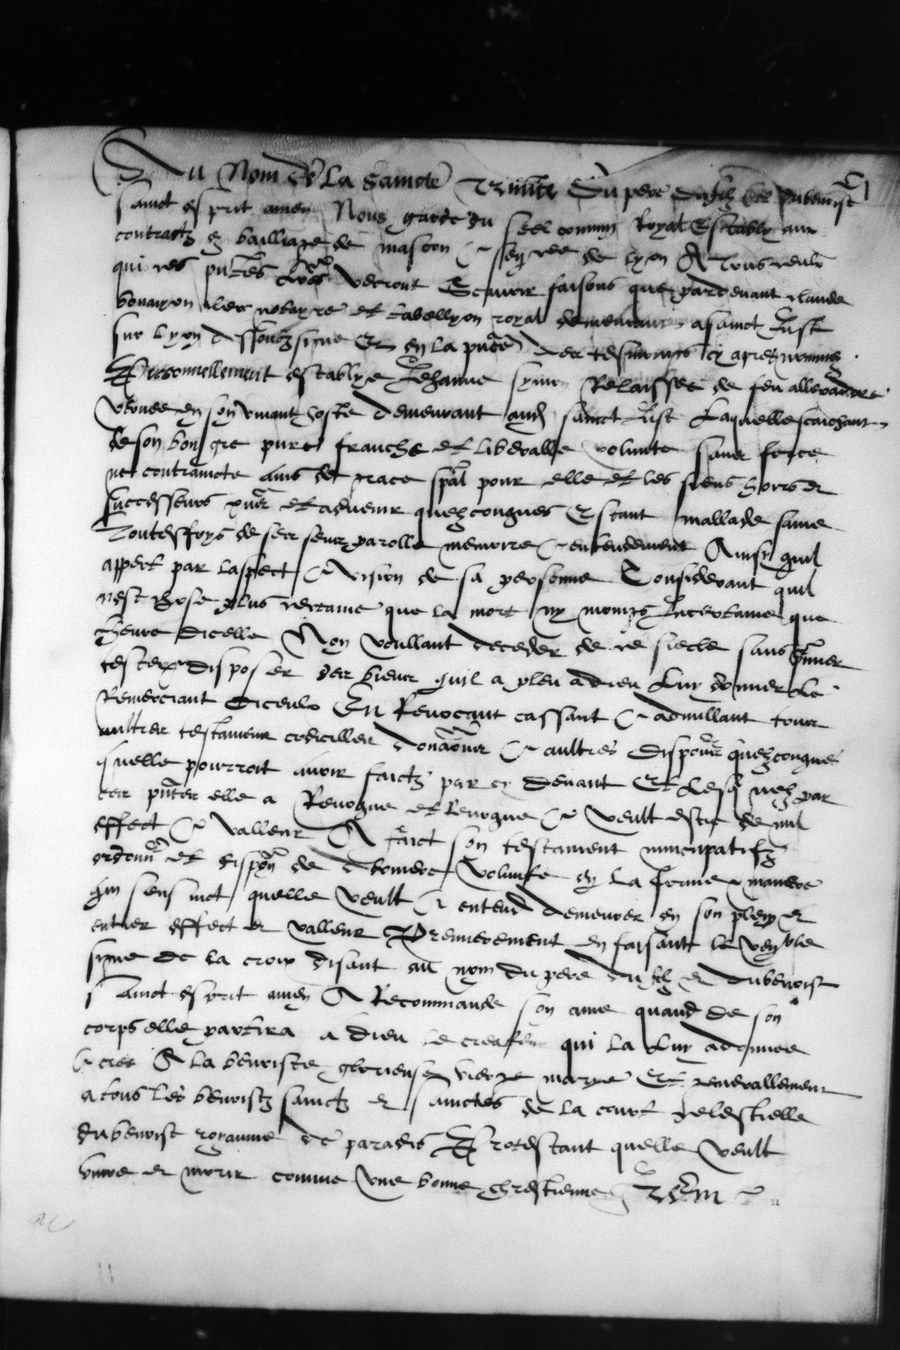 Au Nom de La Saincte Trinite Du pere du filz et du benoist
sainct esprit amen Nous garde du seel commun Royal Estably aux
contractz es bailliage de mascon & senee de lyon A Tous ceulx
qui ces pntes lres verront Scavoir faisons que pardevant claude
notayre et tabellyon royal demeurant a sainct Just
sur lyon dessoubz signe Et en la pnce des tesmoings cy apres nommez
Personnellement establye Jehanne Relaissee de feu allexandre
en son vivant hoste demeurant aud sainct Just Laquelle scaichant
de son bon gre pure franche et liberalle volunte sans force
ne contraincte ains de grace spal pour elle et les siens hoirs et
successeurs et advenir quelzconques Estant mallade saine
Toutesfoys de ses sens parolle memoire & entendement Ainsy quil
appert par laspect & vision de sa personne Considerant quil
nest chose plus certaine que la mort ny moings Incertaine que
lheure dicelle Non voullant deceder de ce siecle sans
tester disposer des biens quil a pleu a dieu Luy donner Le
Remerciant diceulx En Revocant cassant & adnullant tous
aultres testamens codicilles donaons & aultres dispons quelzconques
quelle pourroit avoir faictz par cy devant Et Lesqueulz par
ces pntes elle a Revoque et Revoque & veult estre de nul
effect & valleur A faict son testament nuncupatifz
ordonn et dispon de derniere volunte en la forme & maniere
qui sensuict quelle veult & entend demeurer en son plein et
entier effect et valleur Premierement en faisant le venble
signe de la croix disant au nom du pere du filz et du benoist
sainct esprit amen A Recommande son ame quand de son
corps elle partira a dieu le createur qui la Luy a donnee
& cree A la benoiste glorieuse vierge marye Et generallement
a tous les benoistz sainctz et sainctes de la court celestielle
du benoist royaume de paradis Protestant quelle veult
vivre et morir comme une bonne chrestienne Item